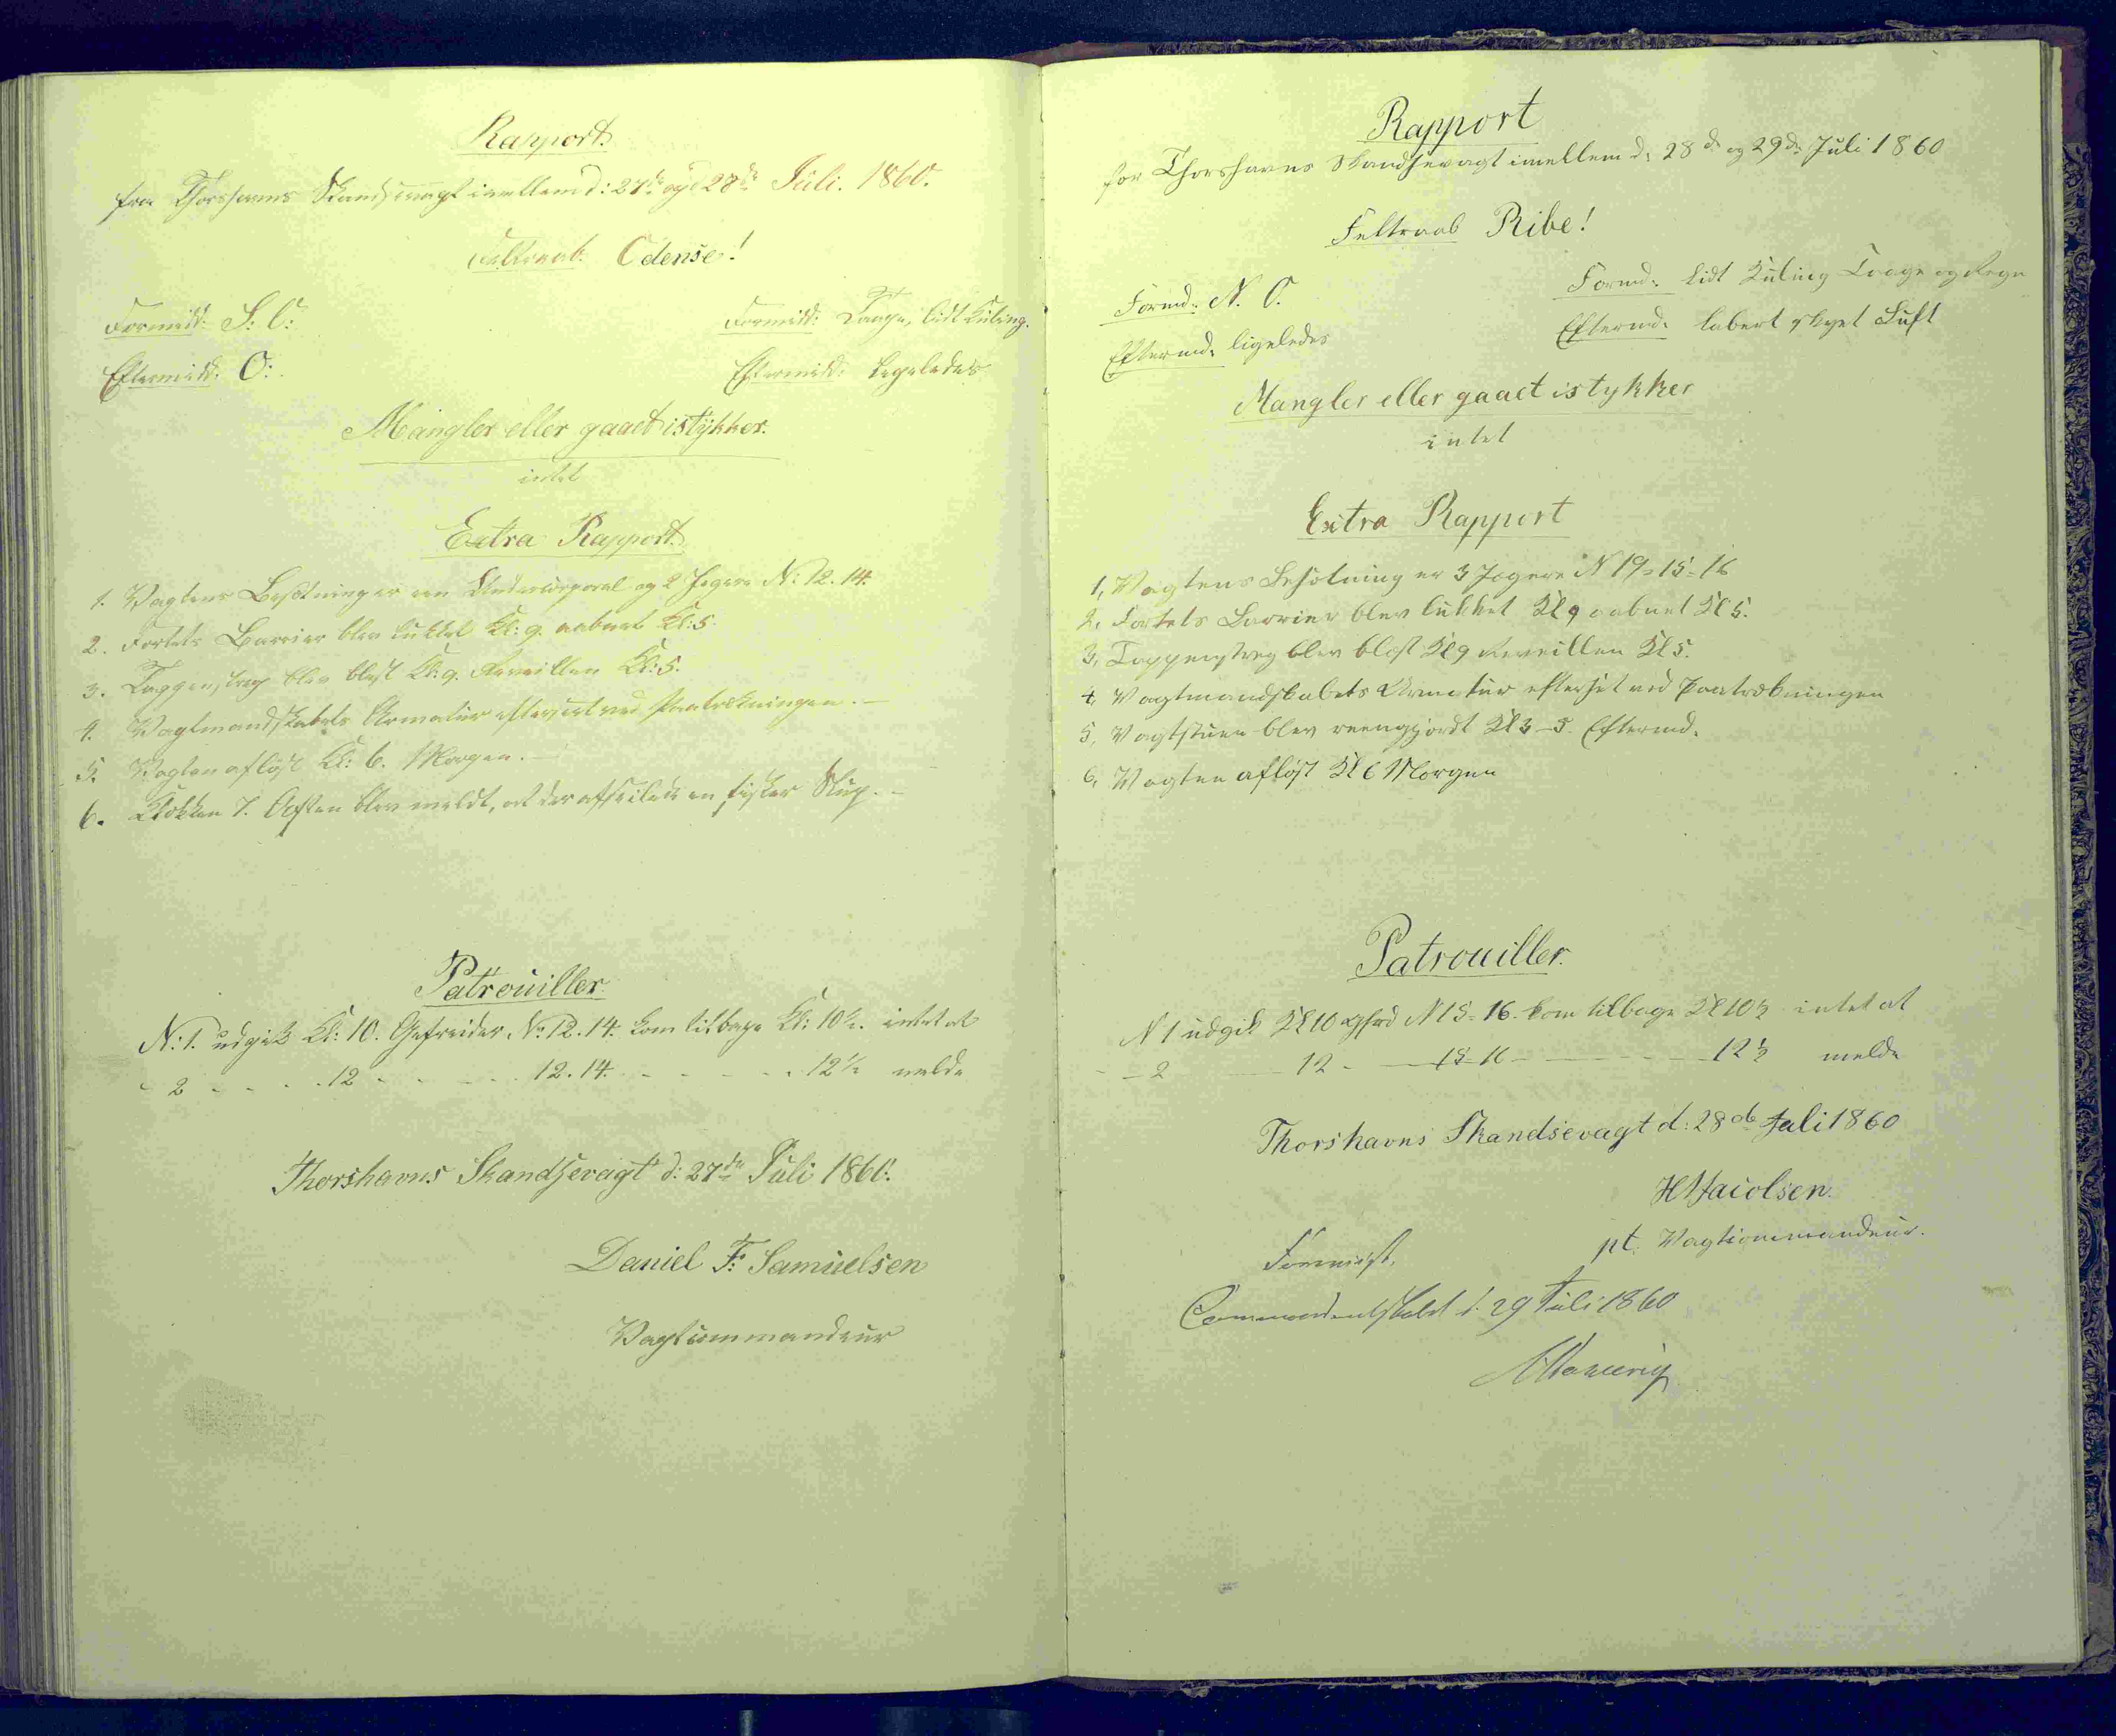 Rapport
fra Thorshavns Skandsevagt imellem d: 27de og d 28de Juli. 1860.
Feltraab: Odense!
Formidd: S: O:
Formidd: Taage, lidt Kuling.
Eftermidd: O:
Eftermidd: ligeledes
Mangler eller gaaet istykker.
intet
Extra Rapport
1. Vagtens Besætning er een Undercorporal og 2 Jægere N: 12. 14.
2. Fortets Barrier blev lukket Kl: 9. aabnet Kl: 5.
3. Tappenstreg blev blæst Kl: 9. Reveillen Kl: 5.
4. Vagtmandskabets Armatur efterseet ved Paatrækningen. —
5. Vagten afløst Kl: 6. Morgen. —
6. Klokken 7. Aften blev meldt, at der afseilede en fisker Slup. —
Patrouiller
N: 1. udgik Kl: 10. Gefreider N: 12. 14. kom tilbage Kl: 10½. intet at
- 2 - - - - 12 - - - - - 12. 14. - - - - - 12½ melde
Thorshavns Skandsevagt d: 27de Juli 1860.
Daniel F: Samuelsen
Vagtcommandeur
Rapport
for Thorshavns Skandsevagt imellem d: 28de og 29de Juli 1860
Feltraab Ribe!
Formd: N. O.
Formd: lidt Kuling Taage og Regn
Eftermd: ligeledes
Eftermd: labert skyet Luft
Mangler eller gaaet istykker
intet
Extra Rapport
1, Vagtens Besætning er 3 Jægere N 19 - 15 - 16
2, Fortets Barrier blev lukket Kl 9 aabnet Kl 5.
3, Tappenstreg blev blæst Kl 9 Reveillen Kl 5.
4, Vagtmandskabets Armatur efterset ved Paatrækningen
5, Vagtstuen blev reengjordt Kl 3 - 5. Eftermd.
6, Vagten afløst Kl 6 Morgen
Patrouiller
N 1 udgik Kl 10 Gfrd N 15 - 16. kom tilbage Kl 10½ intet at
- - 2 — 12 - — 15 - 16 — — 12½ melde
Thorshavns Skandsevagt d: 28de Juli 1860
HJacobsen.
pt. Vagtcommandeur.
Forevist,
Commandantskabet d. 29 Juli 1860